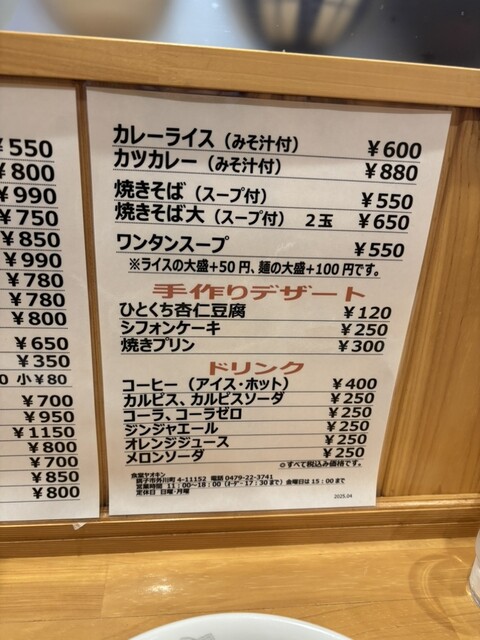 ¥550
¥800
¥990
¥750
¥850
¥990
¥780
¥780
¥800
¥650
¥350
0 小¥80
¥700
¥950
¥1150
¥800
¥700
¥850
¥800
カレーライス（みそ汁付） ¥600
カツカレー（みそ汁付） ¥880
焼きそば（スープ付） ¥550
焼きそば大（スープ付） 2玉 ¥650
ワンタンスープ ¥550
※ライスの大盛+50円、麺の大盛+100円です。
手作りデザート
ひとくち杏仁豆腐 ¥120
シフォンケーキ ¥250
焼きプリン ¥300
ドリンク
コーヒー（アイス・ホット） ¥400
カルピス、カルピスソーダ ¥250
コーラ、コーラゼロ ¥250
ジンジャエール ¥250
オレンジジュース ¥250
メロンソーダ ¥250
◎すべて税込み価格です。
食堂ヤオキン
銚子市外川町 4-11152 電話 0479-22-3741
営業時間 11：00～18：00（ｵｰﾀﾞｰ17：30まで）金曜日は15：00まで
定休日 日曜・月曜
2025.04